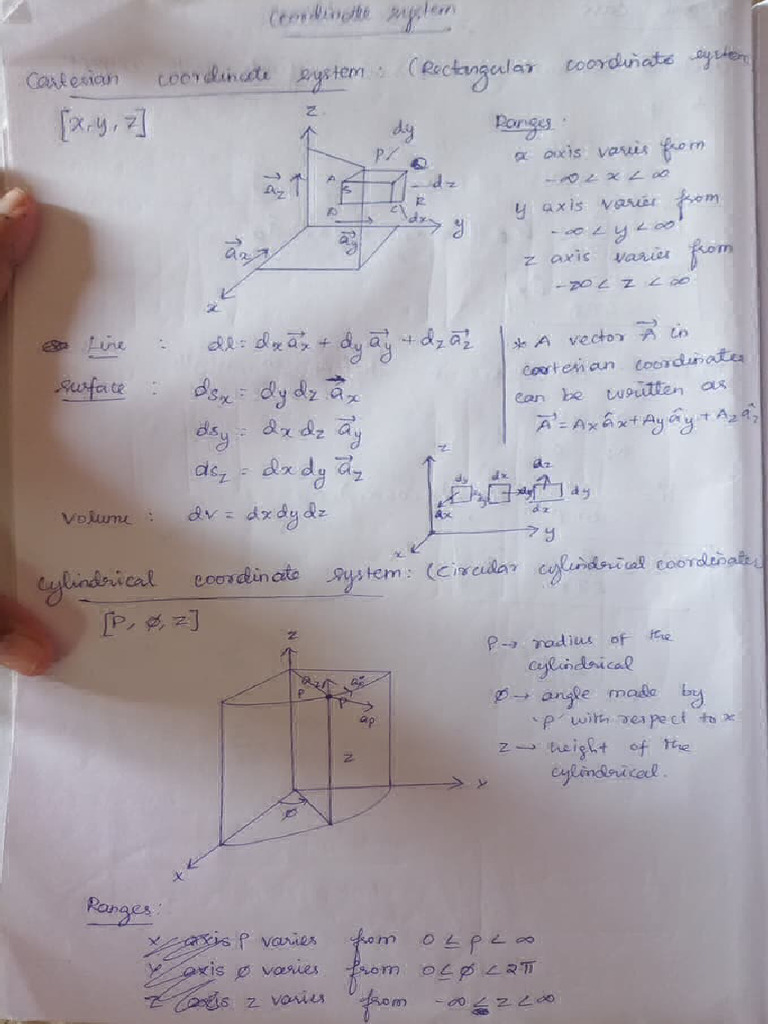 Coordinate system
Cartesian coordinate system: (Rectangular coordinate system
[x, y, z]
z
dy
P
A
S
dz
R
D
C
dx
y
a⃗z
a⃗y
a⃗x
x
Ranges:
x axis varies from
-∞ < x < ∞
y axis varies from
-∞ < y < ∞
z axis varies from
-∞ < z < ∞
Line : dl = dx a⃗x + dy a⃗y + dz a⃗z
Surface : dsx = dy dz a⃗x
dsy = dx dz a⃗y
dsz = dx dy a⃗z
Volume : dv = dx dy dz
* A vector A⃗ in
cartesian coordinates
can be written as
A⃗ = Ax âx + Ay ây + Az âz
z
dx
az
dy
ax
dx
y
x
Cylindrical coordinate system: (Circular cylindrical coordinates
[ρ, φ, z]
z
ρ
P
aρ
z
φ
y
x
ρ → radius of the
cylindrical
φ → angle made by
'ρ' with respect to x
z → height of the
cylindrical.
Ranges:
x axis ρ varies from 0 ≤ ρ < ∞
y axis φ varies from 0 ≤ φ < 2π
z axis z varies from -∞ < z < ∞